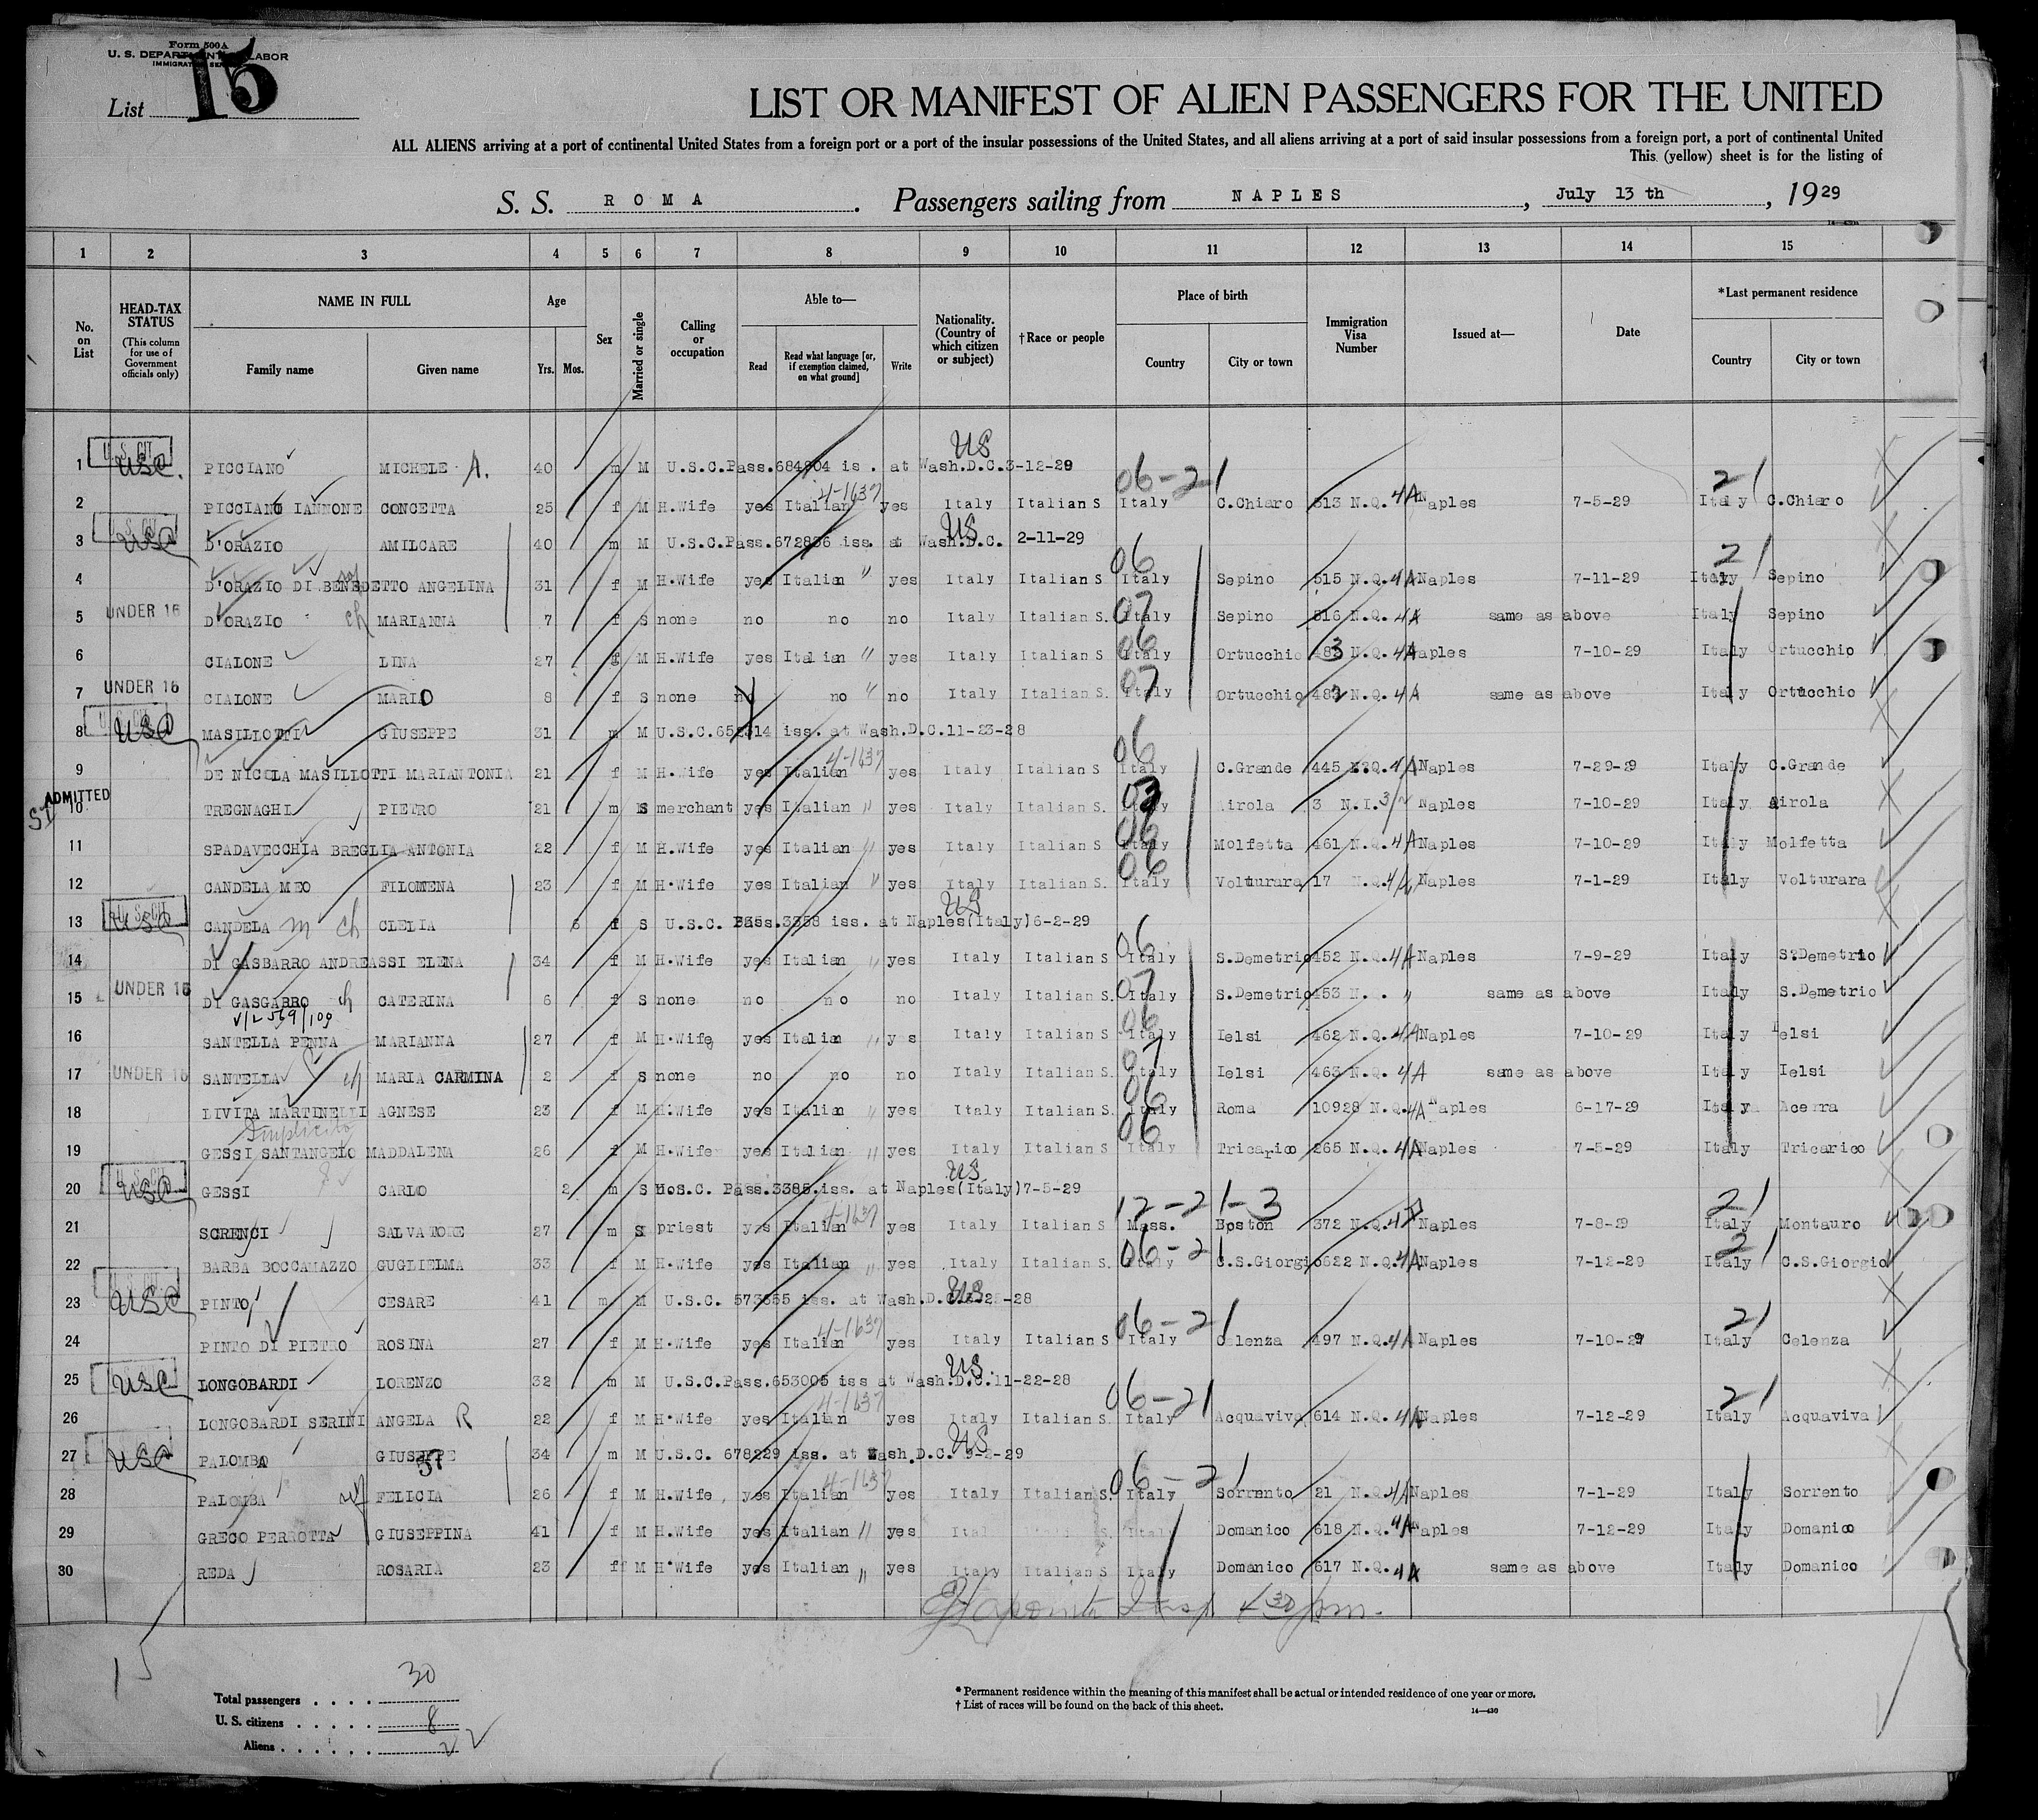 Form 500A
U. S. DEPARTMENT OF LABOR
IMMIGRATION SERVICE
List 15
LIST OR MANIFEST OF ALIEN PASSENGERS FOR THE UNITED
ALL ALIENS arriving at a port of continental United States from a foreign port or a port of the insular possessions of the United States, and all aliens arriving at a port of said insular possessions from a foreign port, a port of continental United
This (yellow) sheet is for the listing of
S. S. ROMA. Passengers sailing from NAPLES, July 13 th, 1929
1 2 3 4 5 6 7 8 9 10 11 12 13 14 15
No. on List
HEAD-TAX STATUS (This column for use of Government officials only)
NAME IN FULL Family name Given name
Age Yrs. Mos.
Sex
Married or single
Calling or occupation
Able to— Read Read what language [or, if exemption claimed, on what ground] Write
Nationality. (Country of which citizen or subject)
†Race or people
Place of birth Country City or town
Immigration Visa Number
Issued at—
Date
*Last permanent residence Country City or town
1 U.S.CIT. USC. PICCIANO MICHELE A. 40 m M U.S.C.Pass.684804 is. at Wash.D.C.3-12-29 US
2 PICCIANO IANNONE CONCETTA 25 f M H.Wife yes Italian 4-1637 yes Italy Italian S Italy 06-21 C.Chiaro 513 N.Q. 4A Naples 7-5-29 Italy 21 C.Chiaro
3 U.S.CIT. USC D'ORAZIO AMILCARE 40 m M U.S.C.Pass.672836 iss. at Wash.D.C. 2-11-29 US
4 D'ORAZIO DI BENEDETTO ANGELINA 31 f M H.Wife yes Italian " yes Italy Italian S Italy 06 Sepino 515 N.Q. 4A Naples 7-11-29 Italy 21 Sepino
5 UNDER 16 D'ORAZIO ch MARIANNA 7 f S none no no no Italy Italian S. Italy 07 Sepino 516 N.Q. 4A same as above Italy Sepino
6 CIALONE LINA 27 f M H.Wife yes Italian " yes Italy Italian S Italy 06 Ortucchio 483 N.Q. 4A Naples 7-10-29 Italy Ortucchio
7 UNDER 16 CIALONE MARIO 8 f S none no no " no Italy Italian S. Italy 07 Ortucchio 482 N.Q. 4A same as above Italy Ortucchio
8 USC MASILLOTTI GIUSEPPE 31 m M U.S.C.652514 iss. at Wash.D.C.11-23-28
9 DE NICOLA MASILLOTTI MARIANTONIA 21 f M H.Wife yes Italian 4-1637 yes Italy Italian S Italy 06 C.Grande 445 N.Q. 4A Naples 7-29-29 Italy C.Grande
10 ADMITTED SI TREGNAGHI PIETRO 21 m S merchant yes Italian " yes Italy Italian S. Italy 03 Airola 3 N.I. 3/2 Naples 7-10-29 Italy Airola
11 SPADAVECCHIA BREGLIA ANTONIA 22 f M H.Wife yes Italian " yes Italy Italian S Italy 06 Molfetta 461 N.Q. 4A Naples 7-10-29 Italy Molfetta
12 CANDELA MEO FILOMENA 23 f M H.Wife yes Italian " yes Italy Italian S. Italy 06 Volturara 17 N.Q. Naples 7-1-29 Italy Volturara
13 U.S.CIT. USC CANDELA m ch CLELIA 6 f S U.S.C. Pass.3358 iss. at Naples(Italy)6-2-29 US
14 DI GASBARRO ANDREASSI ELENA 34 f M H.Wife yes Italian " yes Italy Italian S Italy 06 S.Demetrio 452 N.Q. 4A Naples 7-9-29 Italy S.Demetrio
15 UNDER 16 DI GASGARRO ch CATERINA 6 f S none no no no Italy Italian S. Italy 07 S.Demetrio 453 N. . " same as above Italy S.Demetrio
16 SANTELLA PENNA MARIANNA 27 f M H.Wife yes Italian " yes Italy Italian S Italy 06 Ielsi 462 N.Q. 4A Naples 7-10-29 Italy Ielsi
17 UNDER 16 SANTELLA ch MARIA CARMINA 2 f S none no no no Italy Italian S. Italy 07 Ielsi 463 N.Q. 4A same as above Italy Ielsi
18 LIVITA MARTINELLI AGNESE 23 f M H.Wife yes Italian " yes Italy Italian S. Italy 06 Roma 10928 N.Q. 4A Naples 6-17-29 Italy Acerra
19 GESSI SANTANGELO MADDALENA 26 f M H.Wife yes Italian " yes Italy Italian S Italy 06 Tricarico 265 N.Q. 4A Naples 7-5-29 Italy Tricarico
20 U.S.CIT. USC GESSI CARLO 2 m S U.S.C. Pass.3385.iss. at Naples(Italy)7-5-29 US
21 SCRENCI SALVATORE 27 m S priest yes Italian 4-1637 yes Italy Italian S Mass. 12-21-3 Boston 372 N.Q. Naples 7-8-29 Italy 21 Montauro
22 BARBA BOCCAMAZZO GUGLIELMA 33 f M H.Wife yes Italian " yes Italy Italian S. Italy 06-21 C.S.Giorgio 622 N.Q. 4A Naples 7-12-29 Italy 21 C.S.Giorgio
23 USC PINTO CESARE 41 m M U.S.C. 573655 iss. at Wash.D.C. US
24 PINTO DI PIETRO ROSINA 27 f M H.Wife yes Italian 4-1637 yes Italy Italian S Italy 06-21 Celenza 497 N.Q. 4A Naples 7-10-29 Italy 21 Celenza
25 USC LONGOBARDI LORENZO 32 m M U.S.C.Pass.653005 iss at Wash.D.C.11-22-28 US
26 LONGOBARDI SERINI ANGELA R 22 f M H.Wife yes Italian 4-1637 yes Italy Italian S. Italy 06-21 Acquaviva 614 N.Q. 4A Naples 7-12-29 Italy 21 Acquaviva
27 USC PALOMBA GIUSEPPE 37 34 m M U.S.C. 678229 iss. at Wash.D.C. 9-2-29 US
28 PALOMBA wf FELICIA 26 f M H.Wife yes Italian 4-1637 yes Italy Italian S. Italy 06-21 Sorrento 21 N.Q. 4A Naples 7-1-29 Italy Sorrento
29 GRECO PERROTTA GIUSEPPINA 41 f M H.Wife yes Italian " yes Italy S. Italy Domanico 618 N.Q. 4A Naples 7-12-29 Italy Domanico
30 REDA ROSARIA 23 f M H.Wife yes Italian " yes Italy Italian S Italy Domanico 617 N.Q. 4A same as above Italy Domanico
15
Total passengers . . . . 30
U. S. citizens . . . . . 8
Aliens . . . . . . 22
* Permanent residence within the meaning of this manifest shall be actual or intended residence of one year or more.
† List of races will be found on the back of this sheet.
14—430